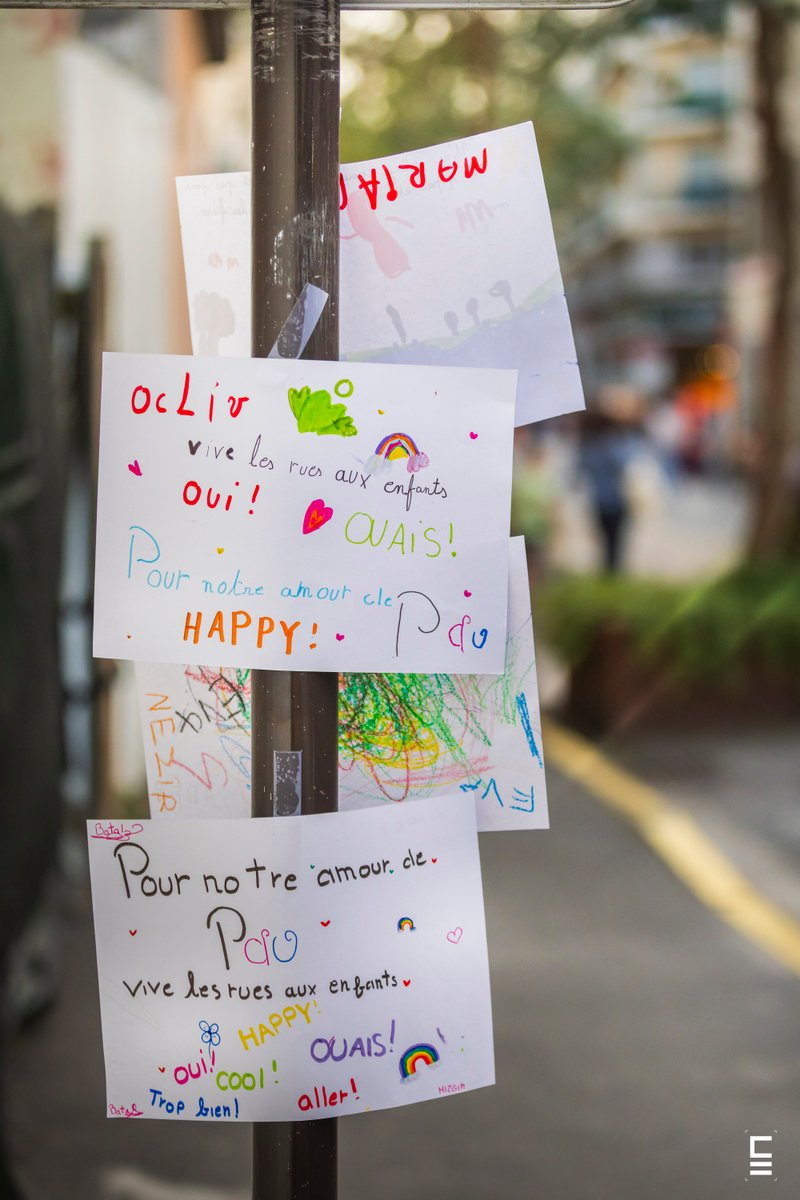 MARIA
ocLiv
vive les rues aux enfants
oui!
OUAiS!
Pour notre amour de Pau
HAPPY!
NEZIR
EVA
Pour notre amour de
Pau
vive les rues aux enfants
HAPPY!
OUAIS!
oui!
cool!
Trop bien!
aller!
HIZGIN